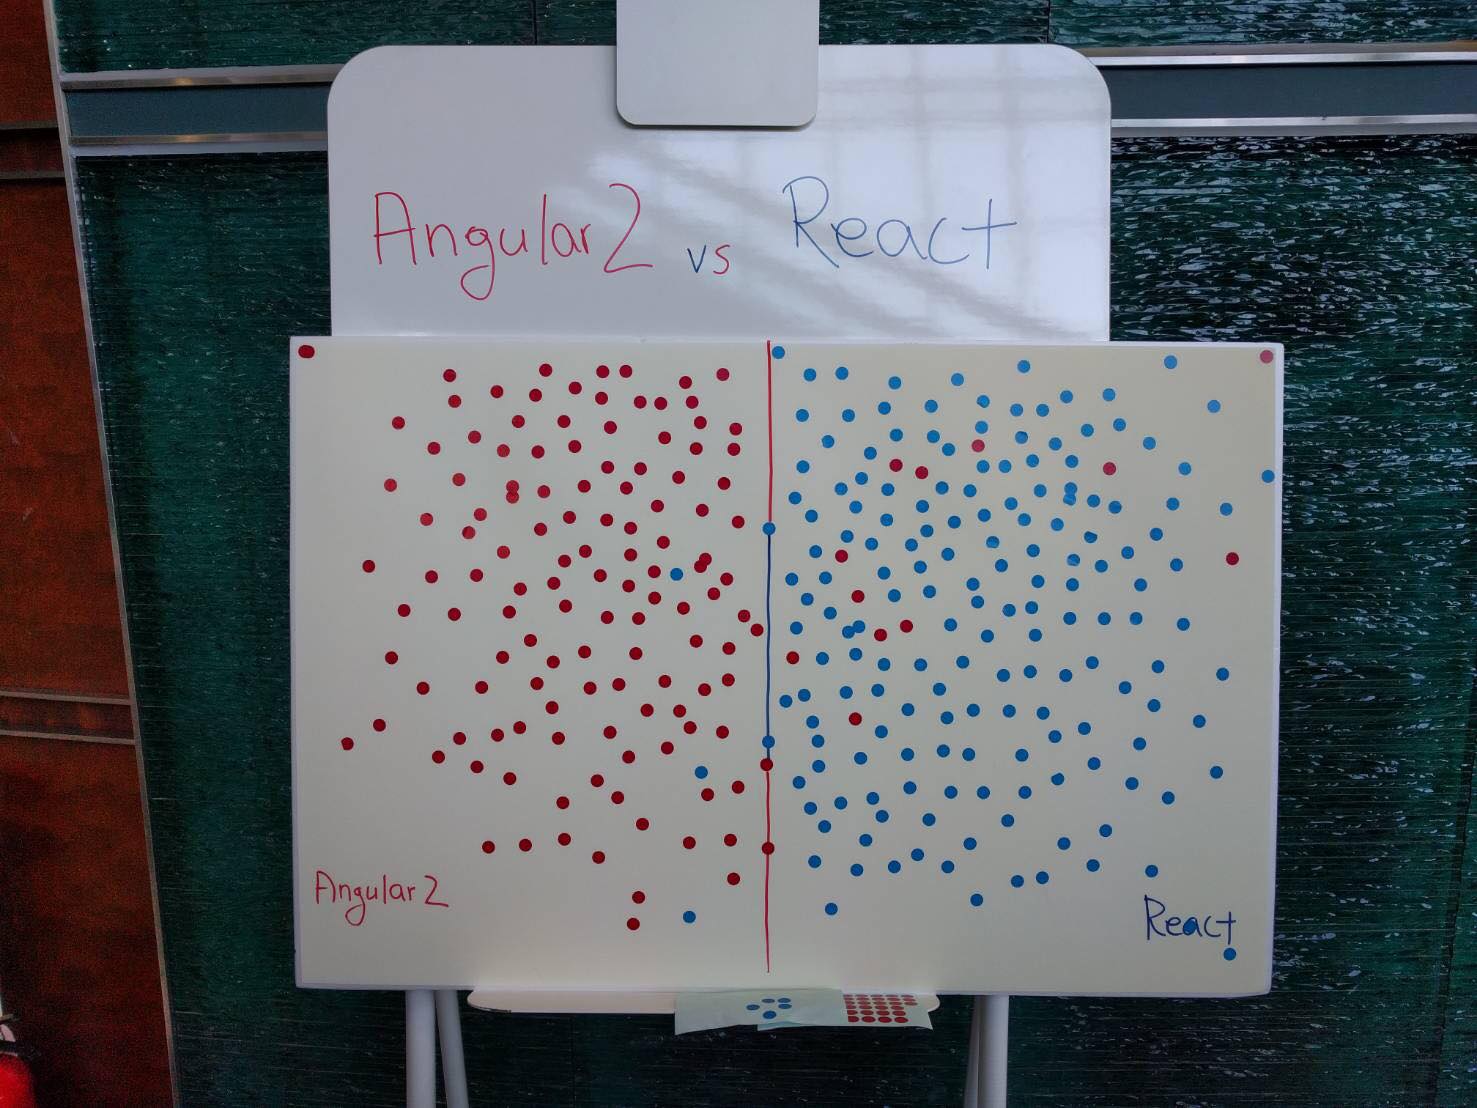 Angular2 vs React
Angular2
React